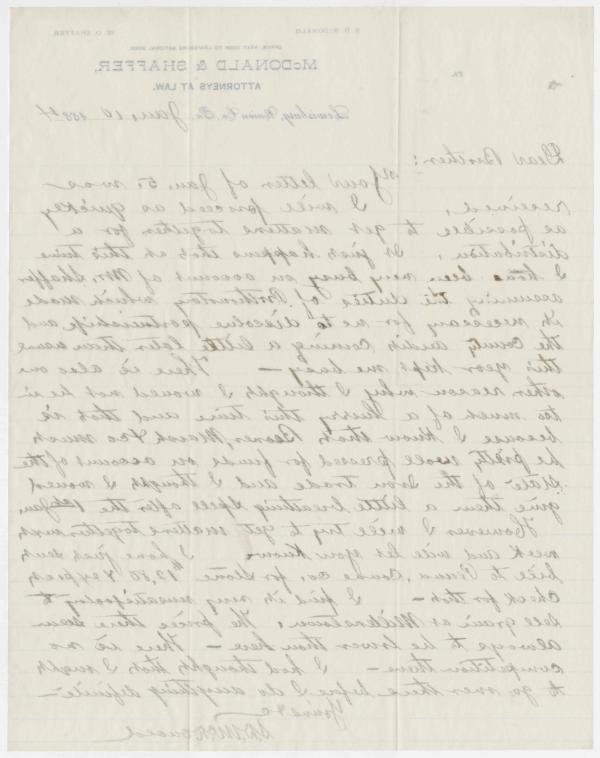 S. D. McDONALD. W. O. SHAFFER.
OFFICE, NEXT DOOR TO LEWISBURG NATIONAL BANK.
McDONALD & SHAFFER,
ATTORNEYS AT LAW.
Lewisburg, Union Co. Pa. Jan. 10 1884
Dear Brother:
Your letter of Jan. 5. was
received, I will proceed as quickly
as possible to get matters together for a
distribution. It just happens that at this time
I have been very busy on account of Mr. Shaffer
assuming the duties of Prothonotary which made
it necessary for me to dissolve partnership and
the county audit coming a little later than usual
this year kept me busy - There is also one
other reason why I thought I would not be in
too much of a hurry this time and that is
because I know that Beaver, Marsh & Co. much
be pretty well pressed for funds on account of the
state of the Iron trade and I thought I would
give them a little breathing spell after the 1st Jan.
However I will try to get matters together next
week and will let you know - I have just sent
bill to Penna. Canal Co. for stone $12.50 & expect
check for that - I find it very unsatisfactory to
sell grain at Millerstown. The prices there seem
always to be lower than here - There is no
competition there - I had thought that I might
to go over there before I do anything definite -
Yours &c
S.D. McDonald